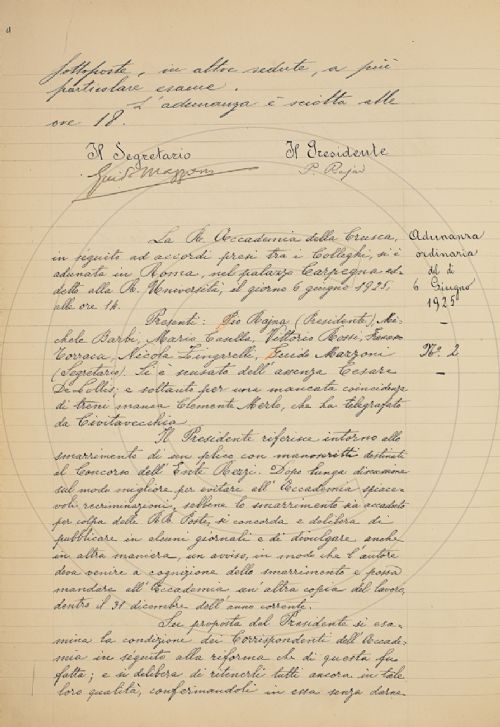 sottoposte, in altre sedute, a più
particolare esame.
L'adunanza è sciolta alle
ore 18.
Il Segretario
Il Presidente
Guido Mazzoni
P. Rajna
Adunanza
ordinaria
del dì
6 Giugno
1925
—
Nº. 2
—
La R. Accademia della Crusca,
in seguito ad accordi presi tra i Colleghi, si è
adunata in Roma, nel palazzo Carpegna ad-
detto alla R. Università, il giorno 6 giugno 1925,
alle ore 14.
Presenti: Pio Rajna (Presidente), Mi-
chele Barbi, Mario Casella, Vittorio Rossi, Francesco
Torraca, Nicola Zingarelli, Guido Mazzoni
(Segretario). Si è scusato dell'assenza Cesare
De Lollis; e soltanto per una mancata coincidenza
di treni manca Clemente Merlo, che ha telegrafato
da Civitavecchia.
Il Presidente riferisce intorno allo
smarrimento di un plico con manoscritti destinati
al Concorso dell'Ente Rezzi. Dopo lunga discussione
sul modo migliore per evitare all'Accademia spiace-
voli recriminazioni, sebbene lo smarrimento sia accaduto
per colpa delle RR. Poste, si concorda e delibera di
pubblicare in alcuni giornali e di divulgare anche
in altra maniera, un avviso, in modo che l'autore
deva venire a cognizione dello smarrimento e possa
mandare all'Accademia un'altra copia del lavoro,
dentro il 31 dicembre dell'anno corrente.
Su proposta del Presidente si esa-
mina la condizione dei Corrispondenti dell'Accade-
mia in seguito alla riforma che di questa fu
fatta; e si delibera di ritenerli tutti ancora in tale
loro qualità, confermandoli in essa senza darne